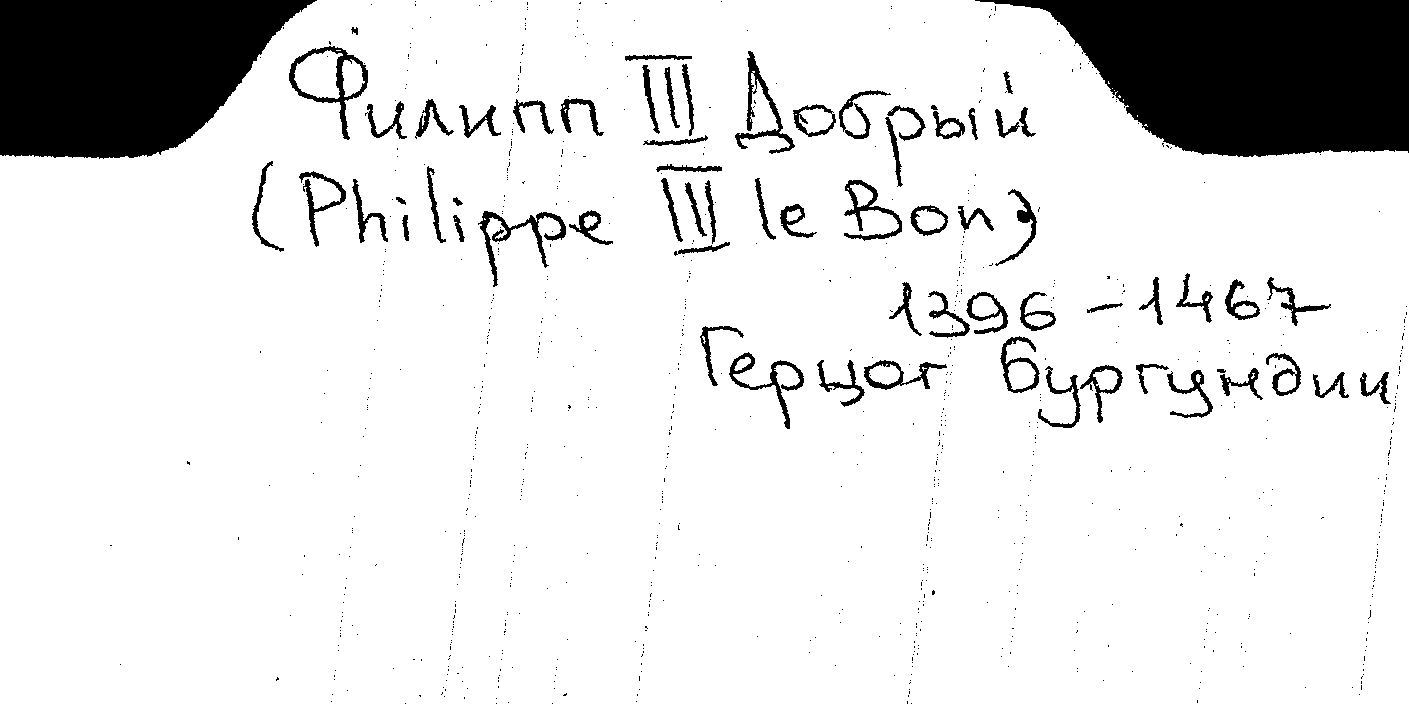 Филипп III Добрый
(Philippe III le Bon)
1396 – 1467
Герцог Бургундии